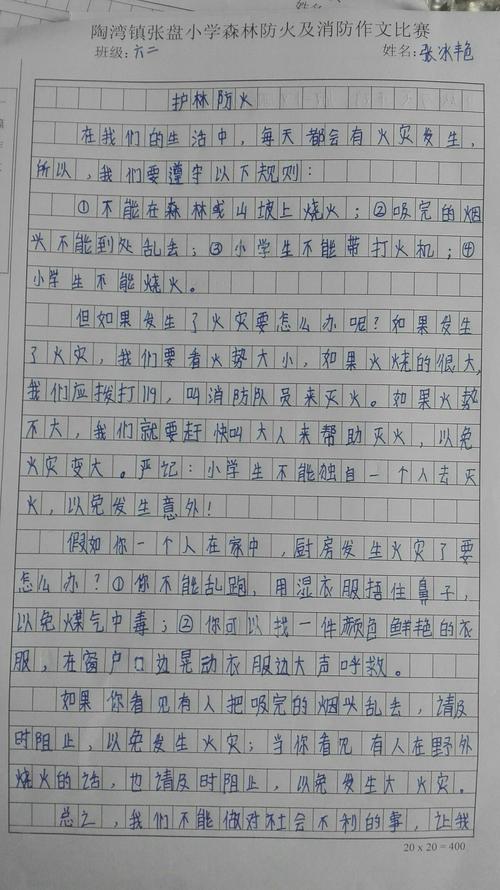 陶湾镇张盘小学森林防火及消防作文比赛
班级:六二 姓名:张冰艳
护林防火
在我们的生活中，每天都会有火灾发生，
所以，我们要遵守以下规则：
①不能在森林或山坡上烧火；②吸完的烟
头不能到处乱去；③小学生不能带打火机；④
小学生不能烧火。
但如果发生了火灾要怎么办呢？如果发生
了火灾，我们要看火势大小，如果火烧的很大，
我们应拨打119，叫消防队员来灭火。如果火势
不大，我们就要赶快叫大人来帮助灭火，以免
火灾变大。严记：小学生不能独自一个人去灭
火，以免发生意外！
假如你一个人在家中，厨房发生火灾了要
怎么办？①你不能乱跑，用湿衣服捂住鼻子，
以免煤气中毒；②你可以找一件颜色鲜艳的衣
服，在窗户口边晃动衣服边大声呼救。
如果你看见有人把吸完的烟头乱去，请及
时阻止，以免发生火灾；当你看见有人在野外
烧火的话，也请及时阻止，以免发生大火灾。
总之，我们不能做对社会不利的事，让我
20 x 20 = 400